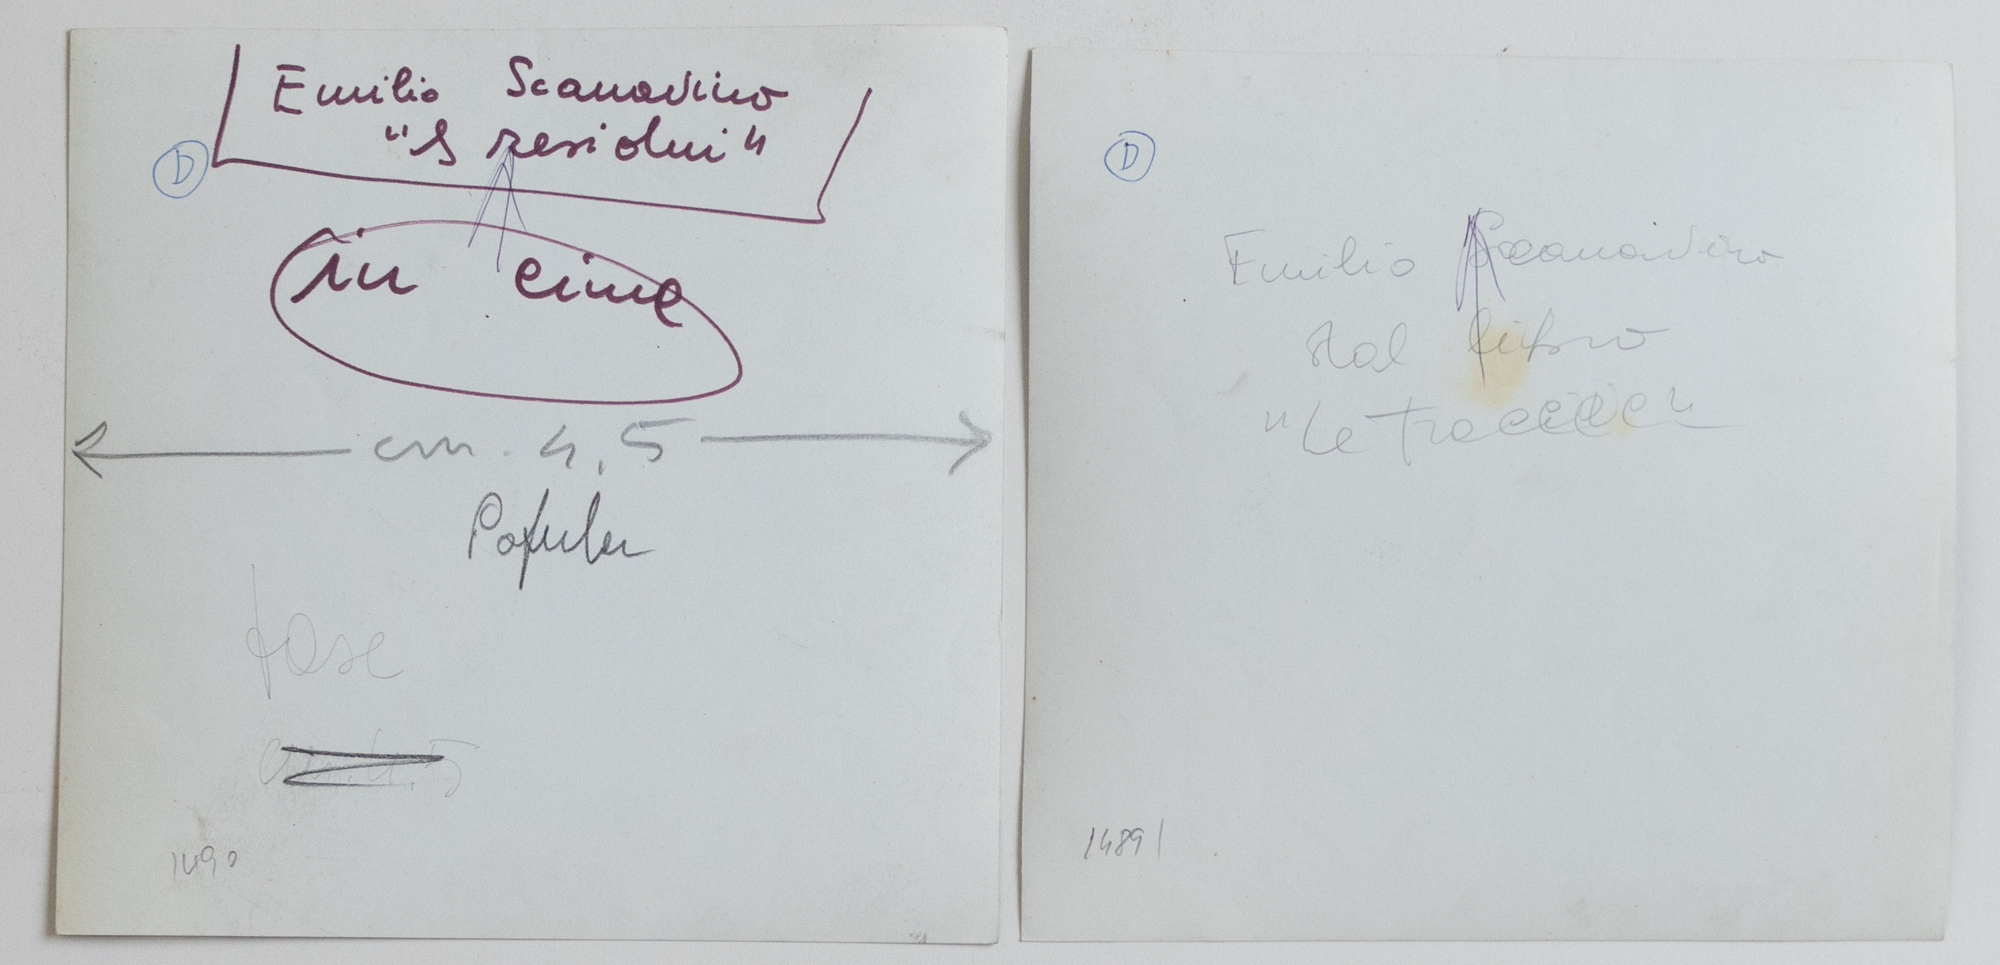 Emilio Scanavino
"I residui"
D
in cima
cm. 4,5
fose
cm. 4,5
1490
D
Emilio Scanavino
dal libro
"Le
1489 |